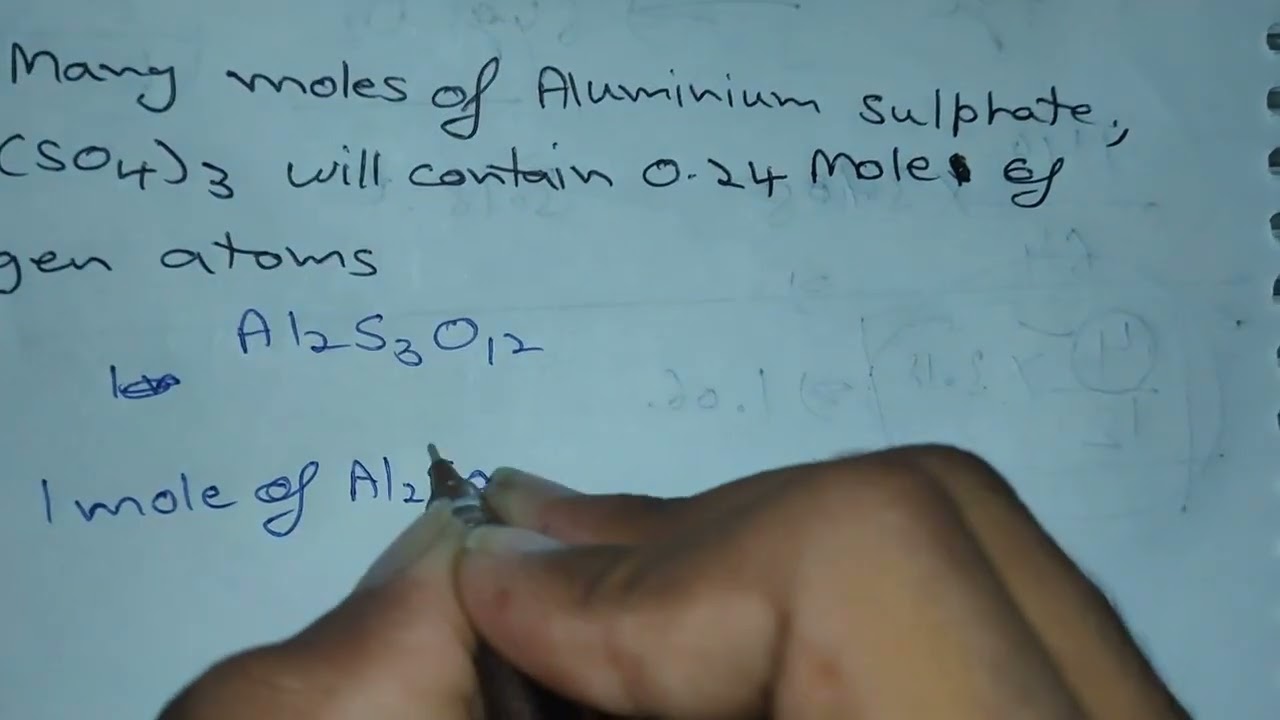 Many moles of Aluminium sulphate,
(SO4)3 will contain 0.24 Mole of
gen atoms
Al2S3O12
1 mole of Al2